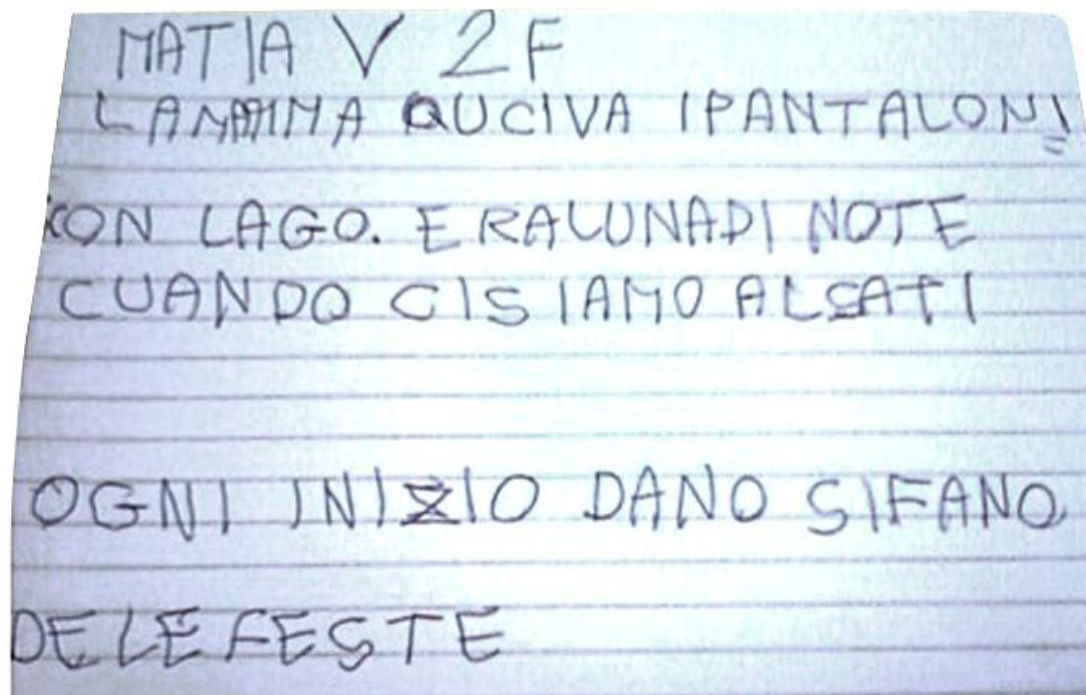 MATIA V 2F
LAMAMMA QUCIVA IPANTALONI
KON LAGO. ERALUNADI NOTE
CUANDO CISIAMO ALSATI
OGNI INIZIO DANO SIFANO
DELEFESTE